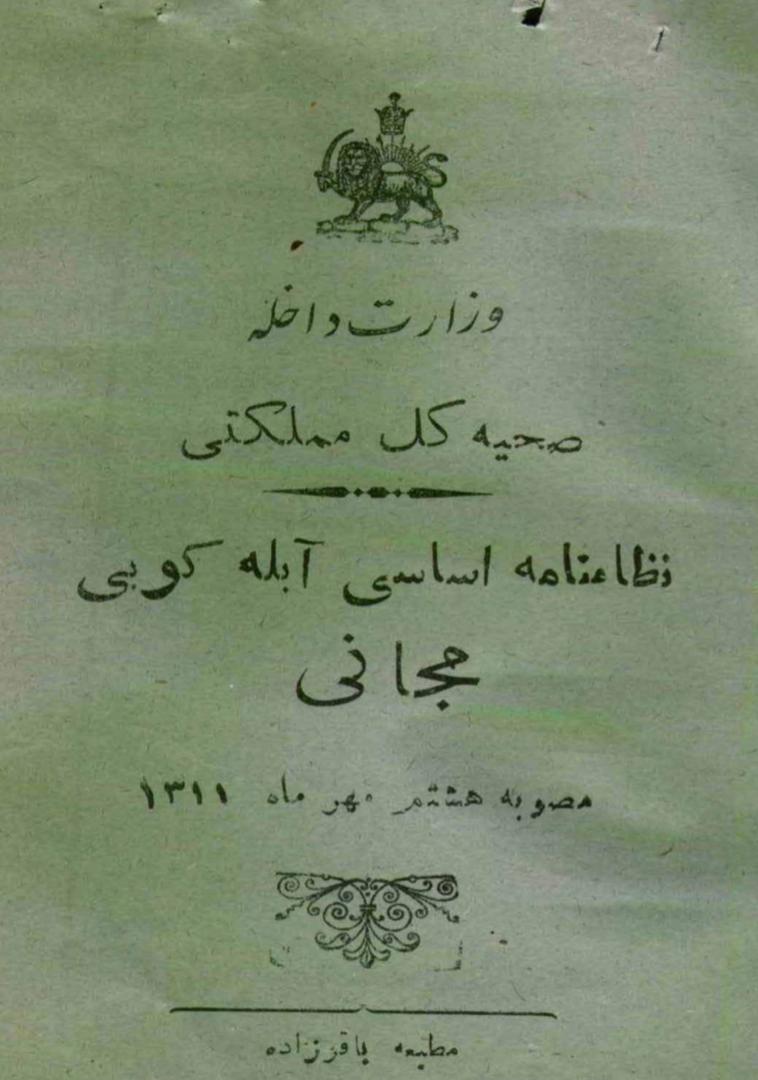 وزارت داخله
صحیه کل مملکتی
نظامنامه اساسی آبله کوبی
مجانی
مصوبه هشتم مهر ماه ۱۳۱۱
مطبعه باقرزاده